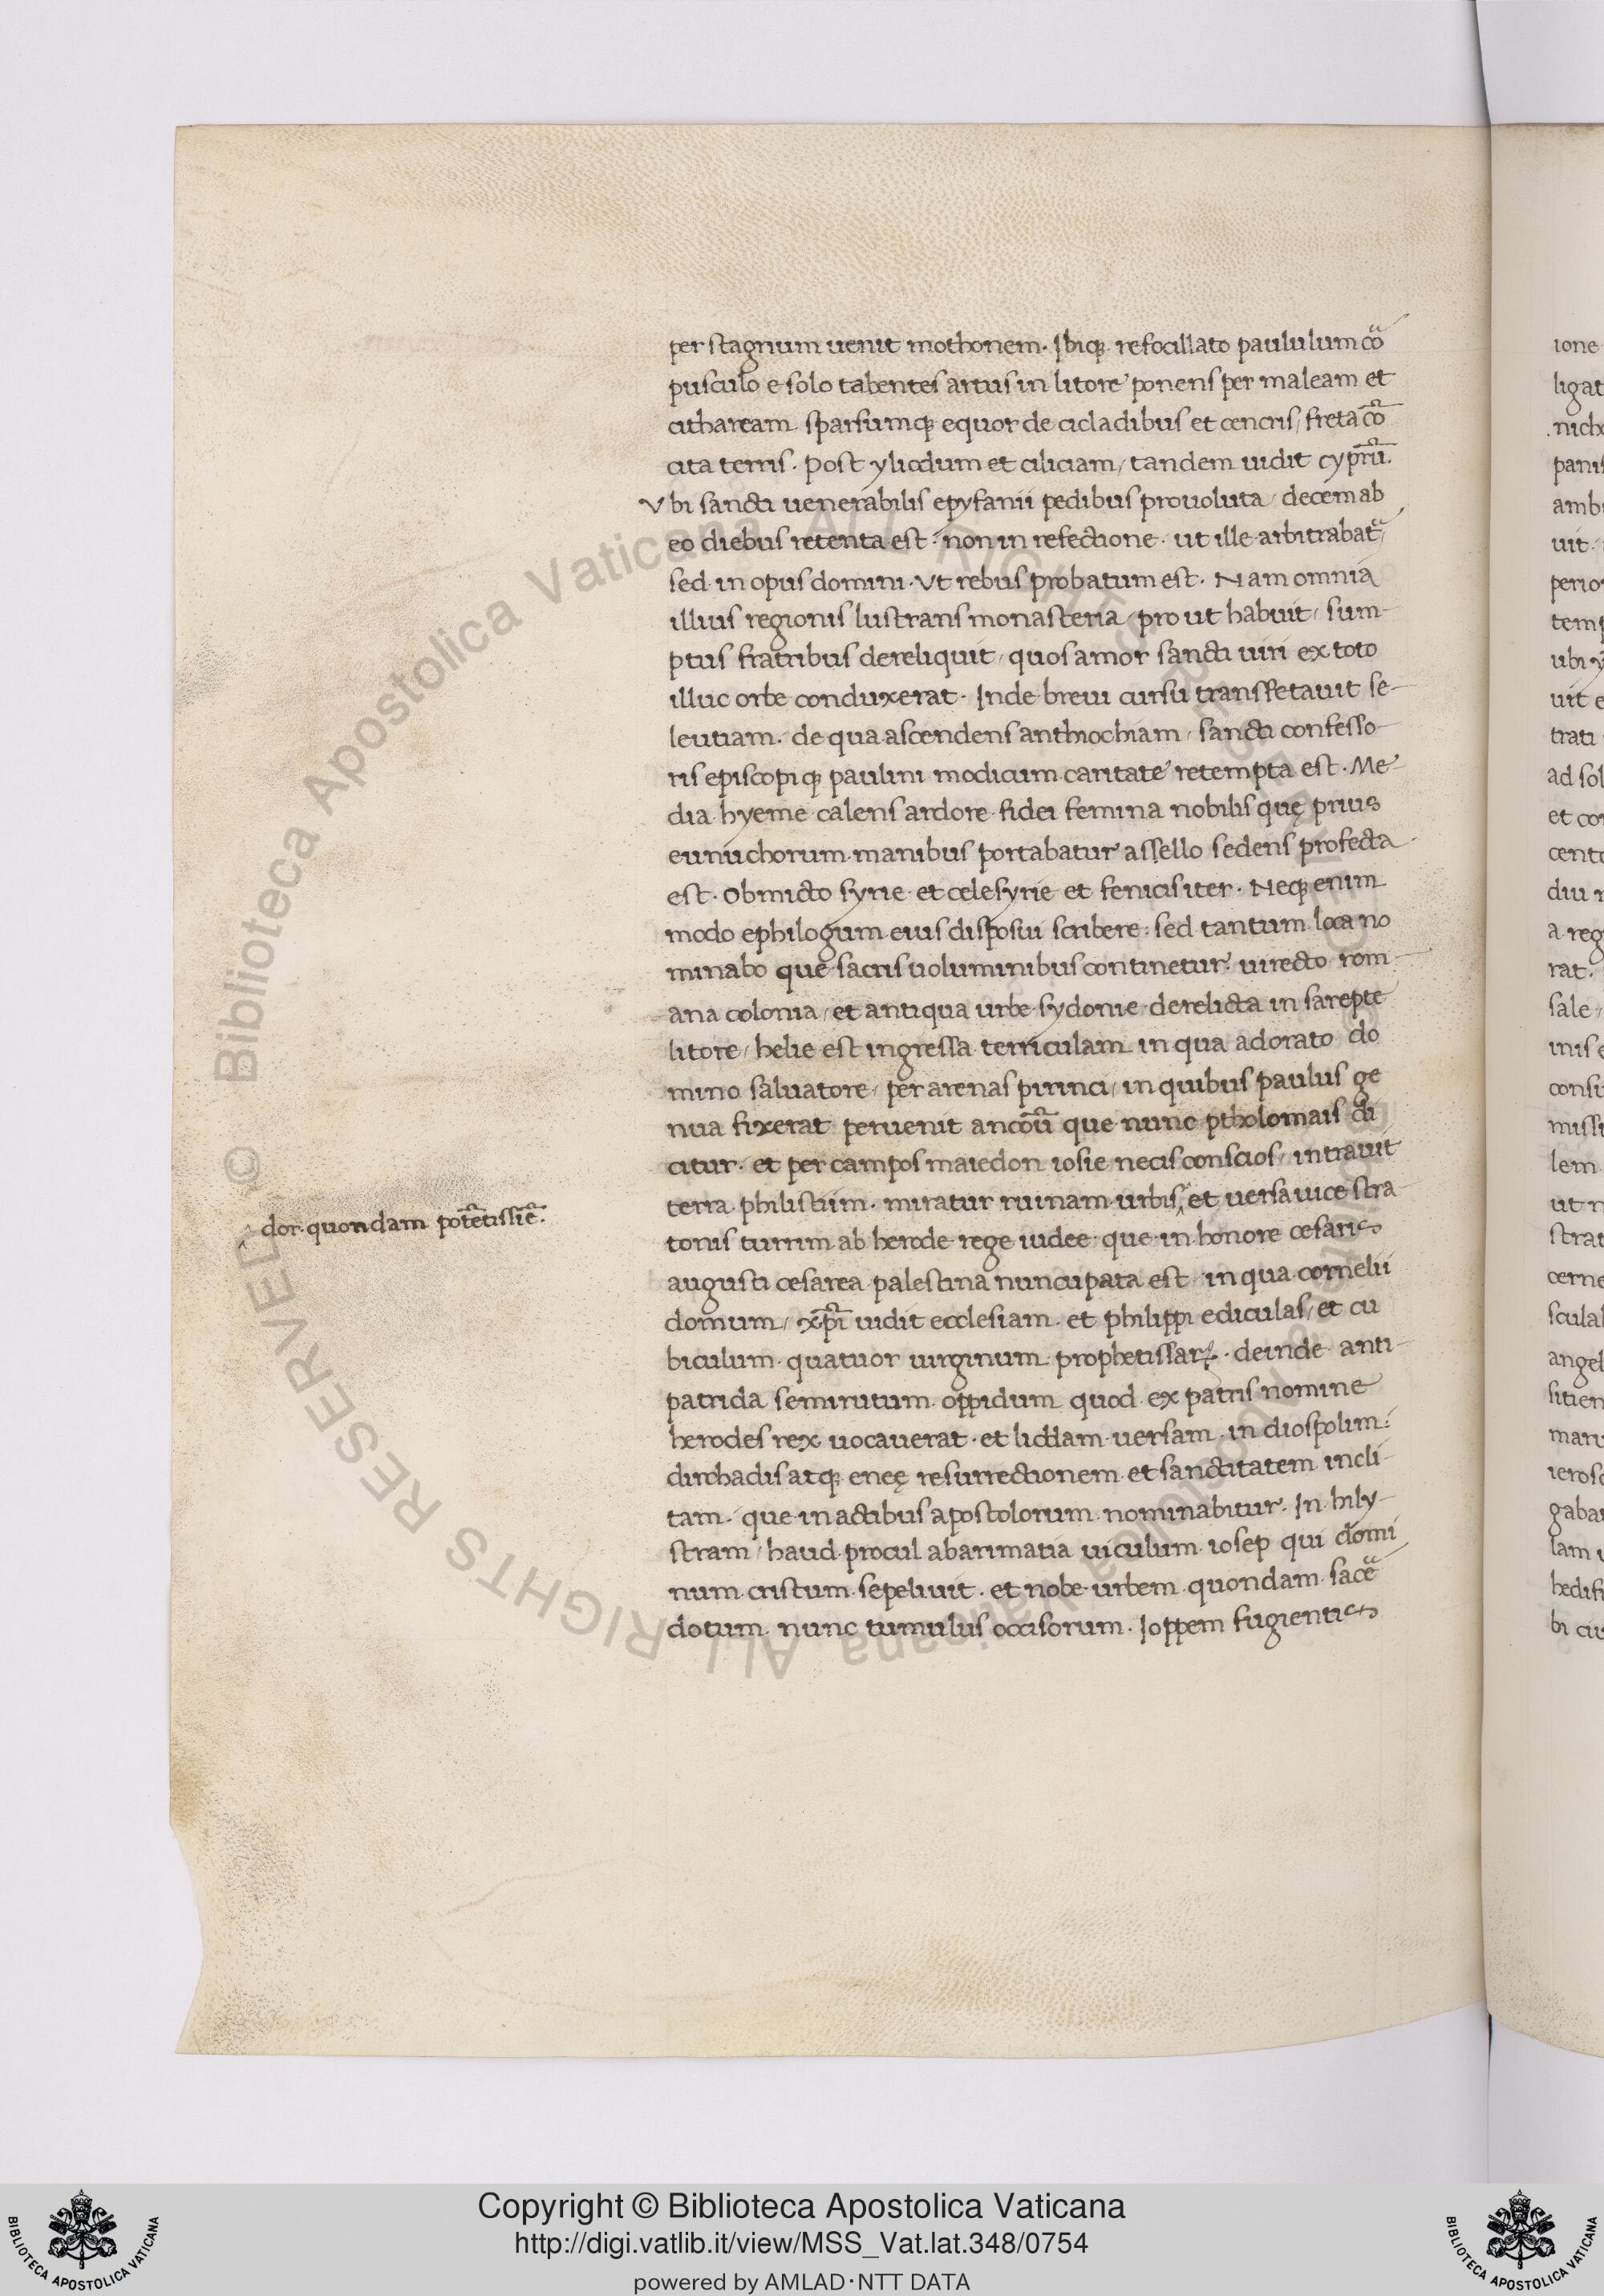 per stagnum uenit mothonem. Ibiq; refocillato paululum cõ
pusculo e solo tabentes artus in litore ponens per maleam et
cithaream sparsumq; equor de cicladibus et cencris, freta cõ
cita terris. Post yliodum et ciliciam, tandem uidit cyprũ.
Vbi sancti uenerabilis epyfanii pedibus prouoluta, decem ab
eo diebus retenta est. non in refectione. ut ille arbitrabat̃,
sed in opus domini. Vt rebus probatum est. Nam omnia
illius regionis lustrans monasteria, pro ut habuit, sum-
ptus fratribus dereliquit, quos amor sancti uiri ex toto
illuc orbe conduxerat. Inde breui cursu transfretauit se-
leutiam. de qua ascendens anthiochiam, sancti confesso-
ris episcopiq; paulini modicum caritate retempta est. Me-
dia hyeme calens ardore fidei femina nobilis quę prius
eunuchorum manibus portabatur assello sedens profecta
est. Obmicto syrie et celesyrie et fenicis iter. Neq; enim
modo ephilogum eius disposui scribere. sed tantum loca no
minabo que sacris uoluminibus continetur. uirecto rom-
ana colonia, et antiqua urbe sydonie derelicta in sarepte
litore, helie est ingressa terriculam in qua adorato do
mino saluatore, per arenas pirinci, in quibus paulus ge
nua fixerat peruenit ancoũ que nunc ptholomais di
citur. et per campos maiedon iosie necis conscios, intrauit
terra philistiim. miratur ruinam urbis ‸ et uersa uice stra-
‸ dor quondam potẽtissiẽ.
tonis turrim ab herode rege iudee que in honore cesaris
augusti cesarea palestina nuncupata est in qua cornelii
domum, xp̃i uidit ecclesiam et philippi ediculas, et cu
biculum quatuor uirginum prophetissaꝝ. deinde anti-
patrida semirutum oppidum quod ex patris nomine
herodes rex uocauerat. et liddam uersam in diospolim.
dirchadis atq; eneę resurrectionem et sanctitatem incli-
tam. que in actibus apostolorum nominabitur. In hily-
stram, haud procul abarimatia uiculum iosep qui domi
num cristum sepeliuit. et nobe urbem quondam sacẽ
dotum. nunc tumulus occisorum. Ioppem fugientis
Copyright © Biblioteca Apostolica Vaticana
http://digi.vatlib.it/view/MSS_Vat.lat.348/0754
powered by AMLAD·NTT DATA
BIBLIOTECA APOSTOLICA VATICANA
BIBLIOTECA APOSTOLICA VATICANA